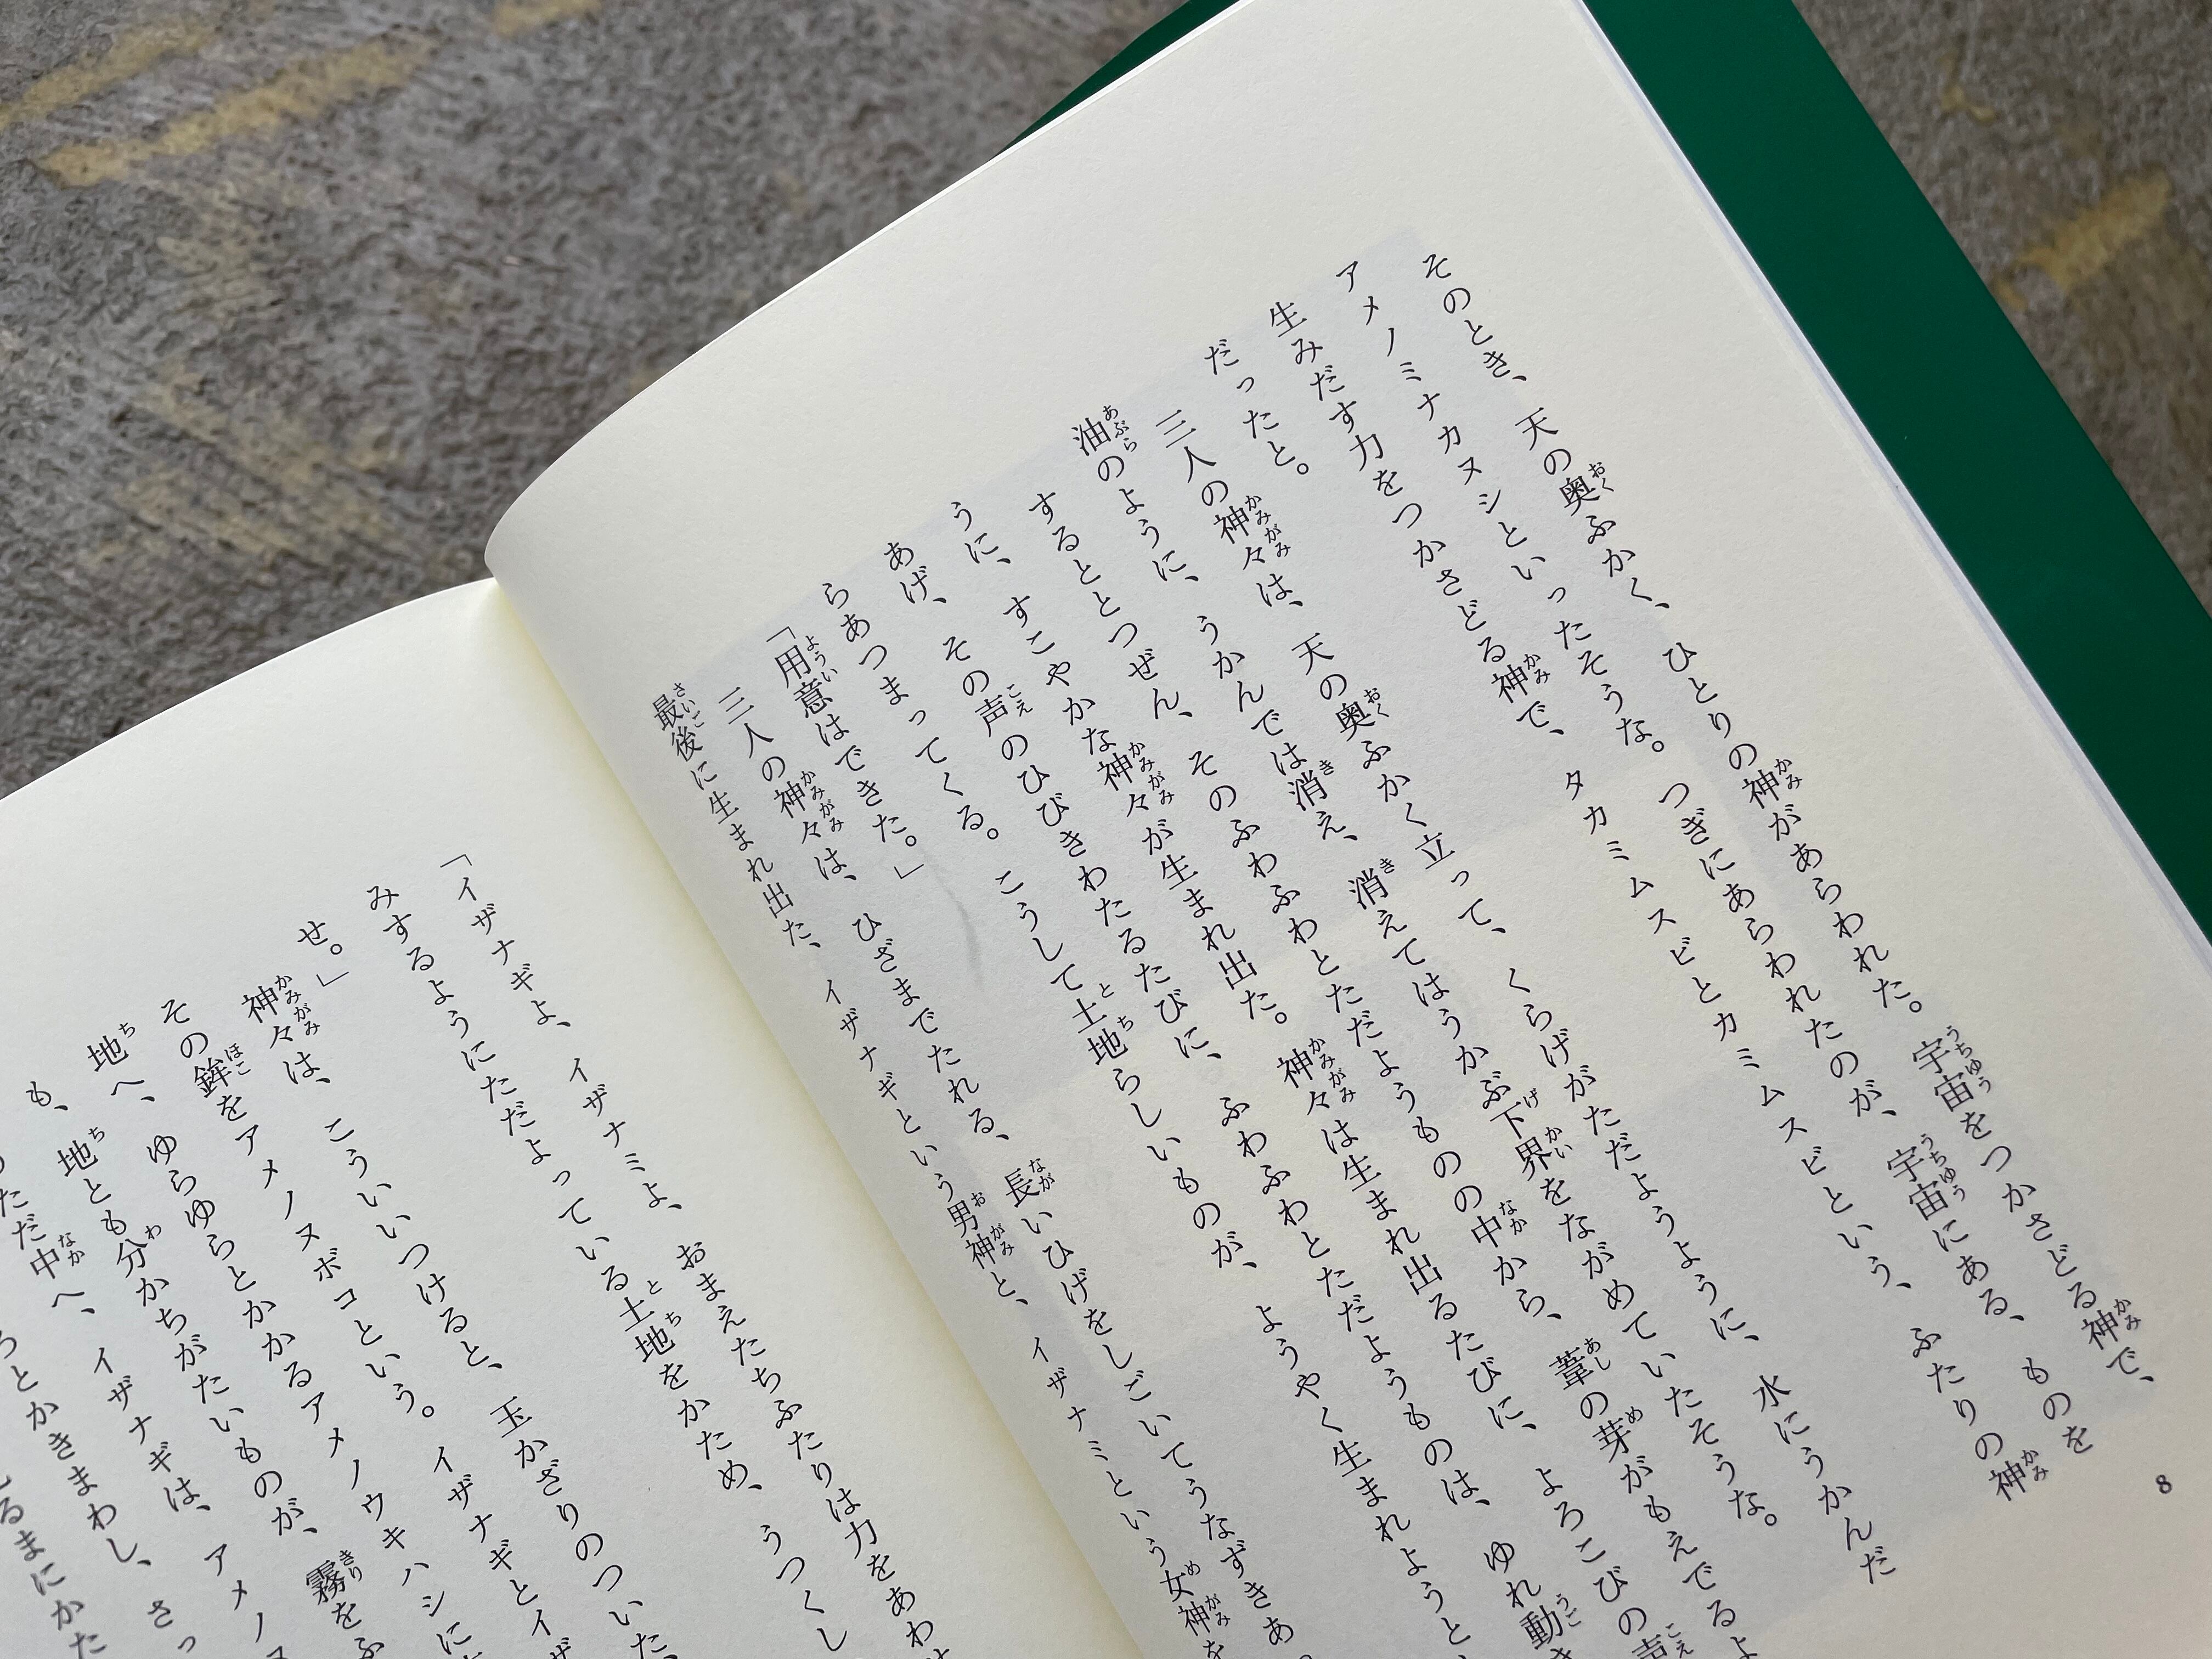 そのとき、天の奥ふかく、ひとりの神があらわれた。宇宙をつかさどる神で、
アメノミナカヌシといったそうな。つぎにあらわれたのが、宇宙にある、ものを
生みだす力をつかさどる神で、タカミムスビとカミムスビという、ふたりの神
だったと。
三人の神々は、天の奥ふかく立って、くらげがただようように、水にうかんだ
油のように、うかんでは消え、消えてはうかぶ下界をながめていたそうな。
するととつぜん、そのふわふわとただようものの中から、葦の芽がもえでるよ
うに、すこやかな神々が生まれ出た。神々は生まれ出るたびに、よろこびの声
あげ、その声のひびきわたるたびに、ふわふわとただようものは、ゆれ動き
らあつまってくる。こうして土地らしいものが、ようやく生まれようと
「用意はできた。」
三人の神々は、ひざまでたれる、長いひげをしごいてうなずきあ
最後に生まれ出た、イザナギという男神と、イザナミという女神を
「イザナギよ、イザナミよ、おまえたちふたりは力をあわせ
みするようにただよっている土地をかため、うつくし
せ。」
神々は、こういいつけると、玉かざりのついた
その鉾をアメノヌボコという。イザナギとイザ
地へ、ゆらゆらとかかるアメノウキハシに
も、地とも分かちがたいものが、霧をふ
ただ中へ、イザナギは、アメノヌ
とかきまわし、さっ
るまにかた
8